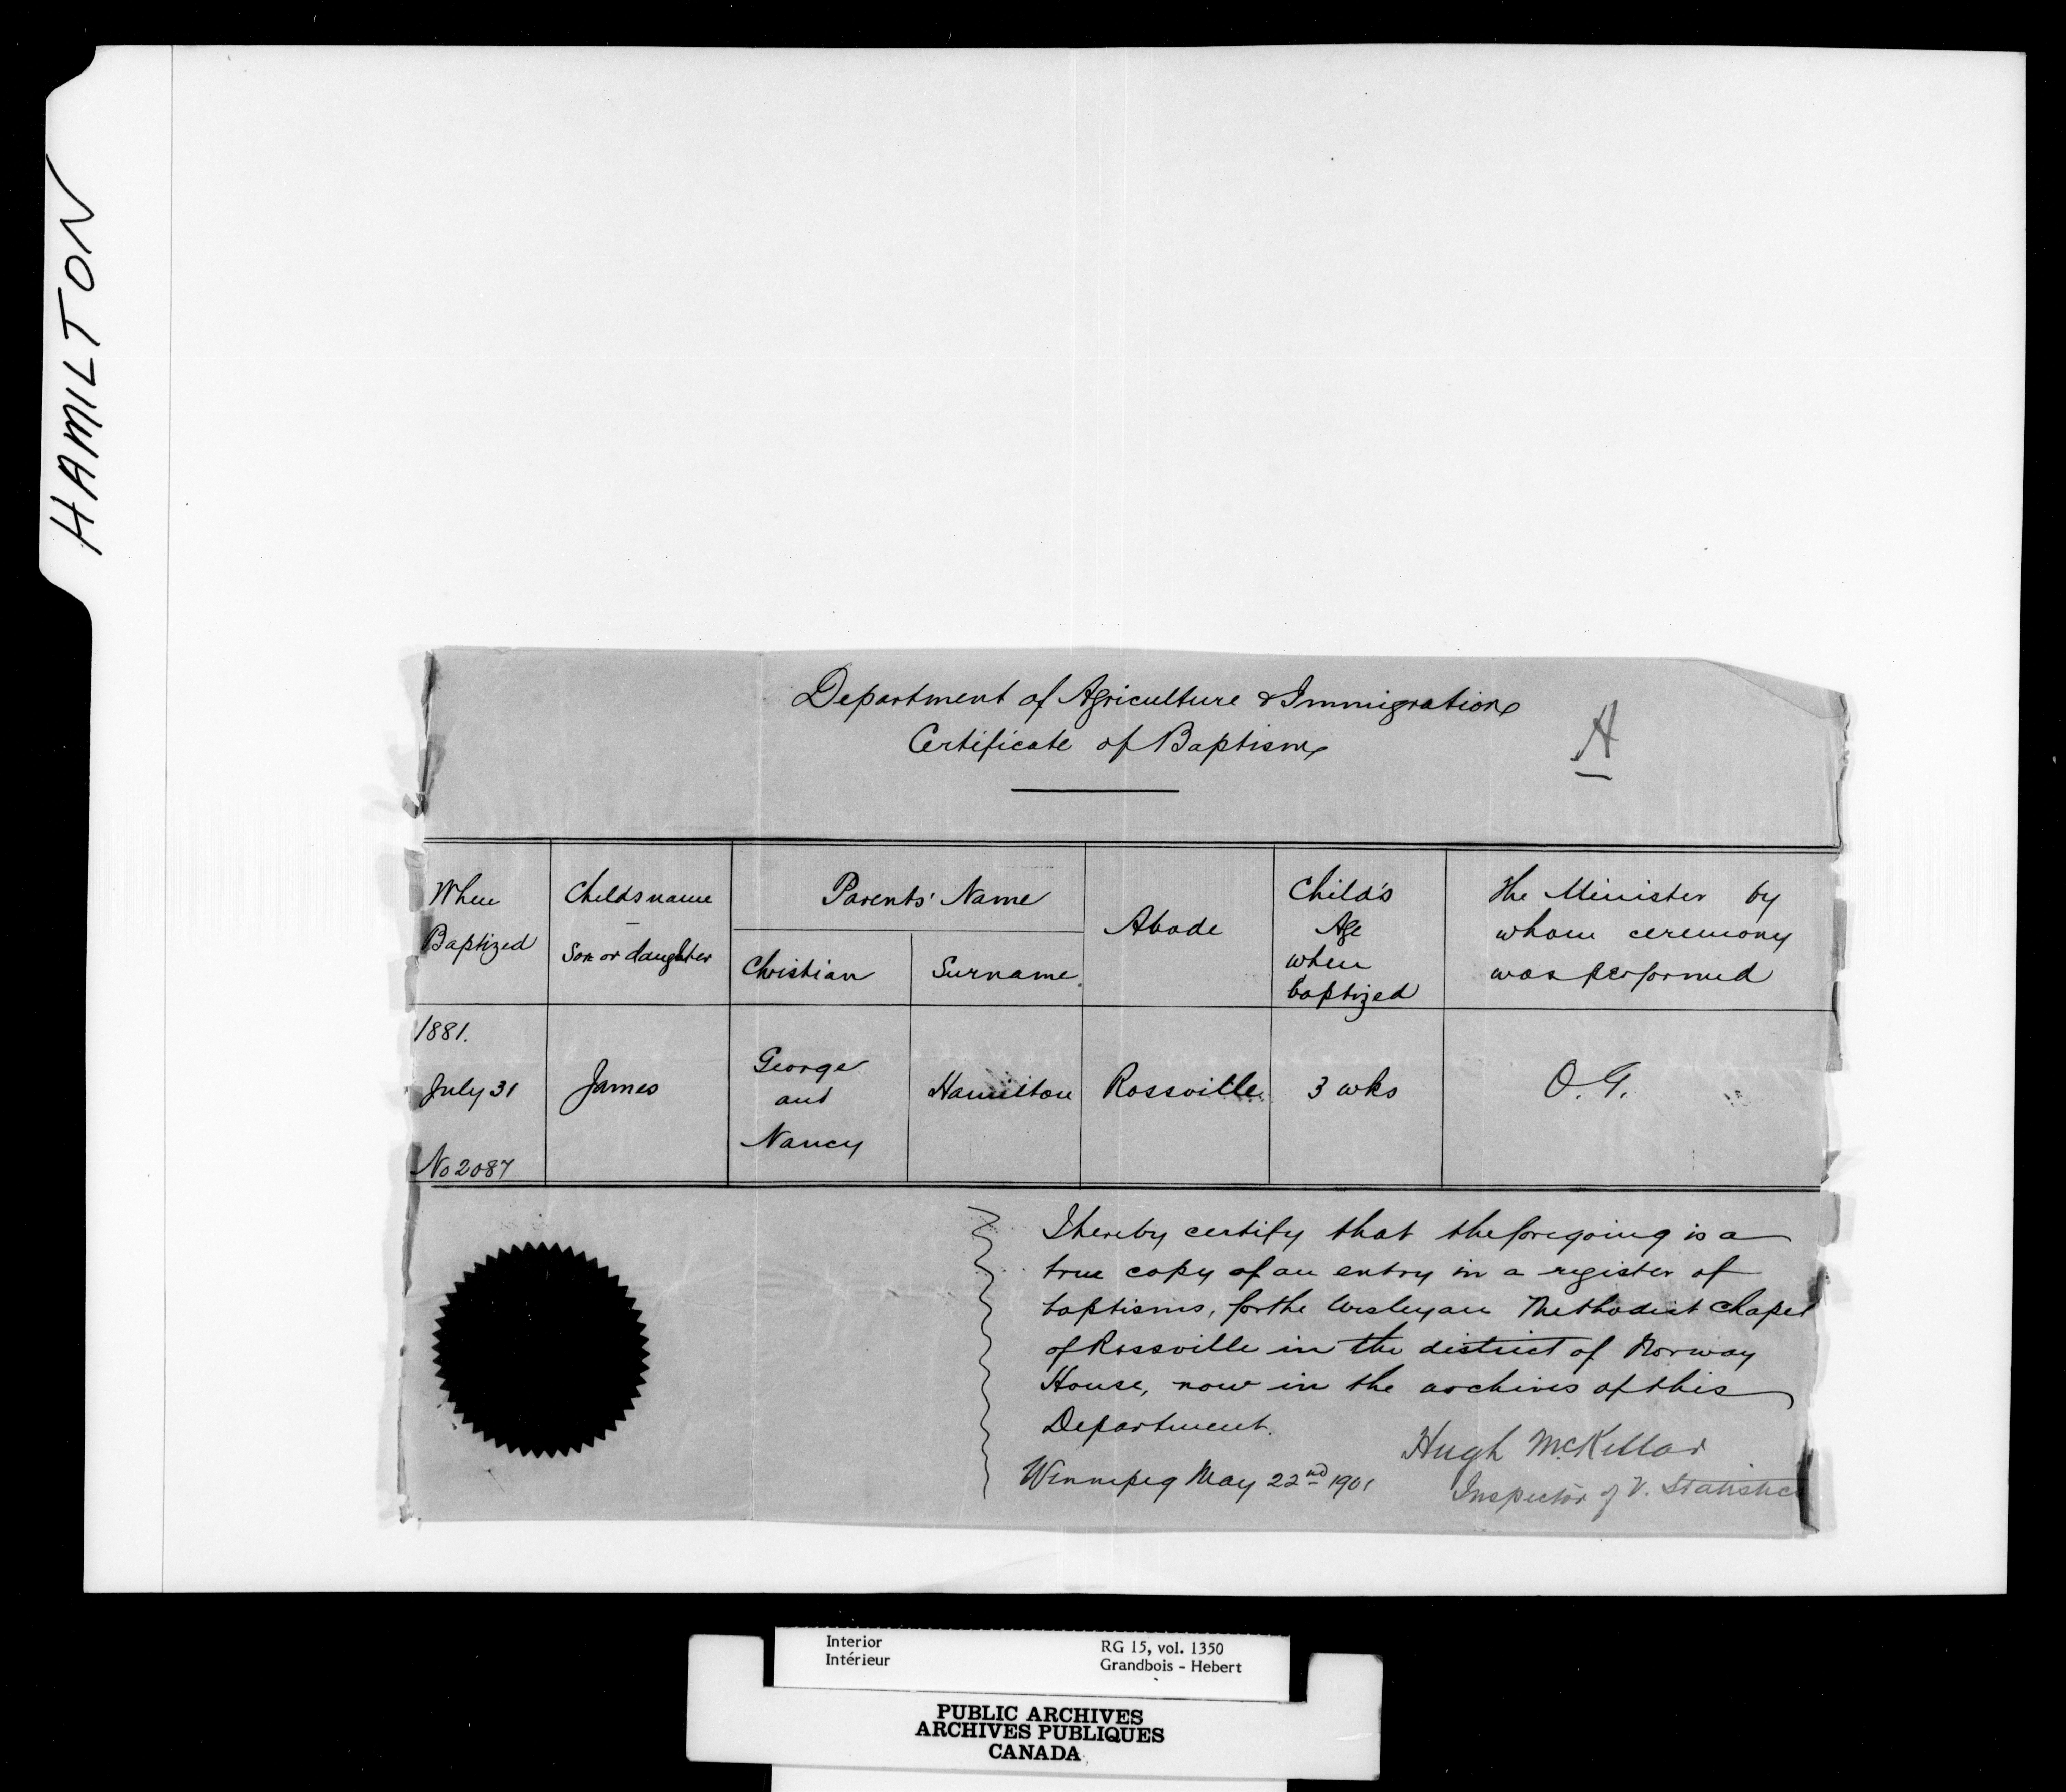 HAMILTON
Department of Agriculture & Immigration
Certificate of Baptism
A
When
Baptized
Childs name
Son or daughter
Parents' Name
Christian
Surname
Abode
Child's
Age
when
baptized
The Minister by
whom ceremony
was performed
1881.
July 31
No 2087
James
George
and
Nancy
Hamilton
Rossville
3 wks
O. G.
I hereby certify that the foregoing is a
true copy of an entry in a register of
baptisms, for the Wesleyan Methodist Chapel
of Rossville in the district of Norway
House, now in the archives of this
Department.
Hugh McKellar
Winnipeg May 22nd 1901
Inspector of V. Statistics
Interior
Intérieur
RG 15, vol. 1350
Grandbois - Hebert
PUBLIC ARCHIVES
ARCHIVES PUBLIQUES
CANADA